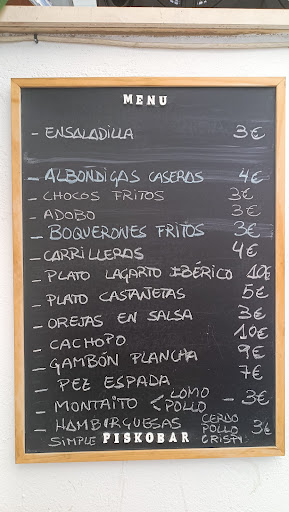 MENU
- ENSALADILLA 3€
- ALBOÑDIGAS CASERAS 4€
- CHOCOS FRITOS 3€
- ADOBO 3€
- BOQUERONES FRITOS 3€
- CARRILLERAS 4€
- PLATO LAGARTO IBÉRICO 10€
- PLATO CASTAÑETAS 5€
- OREJAS EN SALSA 3€
- CACHOPO 10€
- GAMBÓN PLANCHA 9€
- PEZ ESPADA 7€
- MONTAITO < LOMO POLLO - 3€
- HAMBURGUESAS CERDO
SIMPLE POLLO 3€
PISKOBAR CRISTY